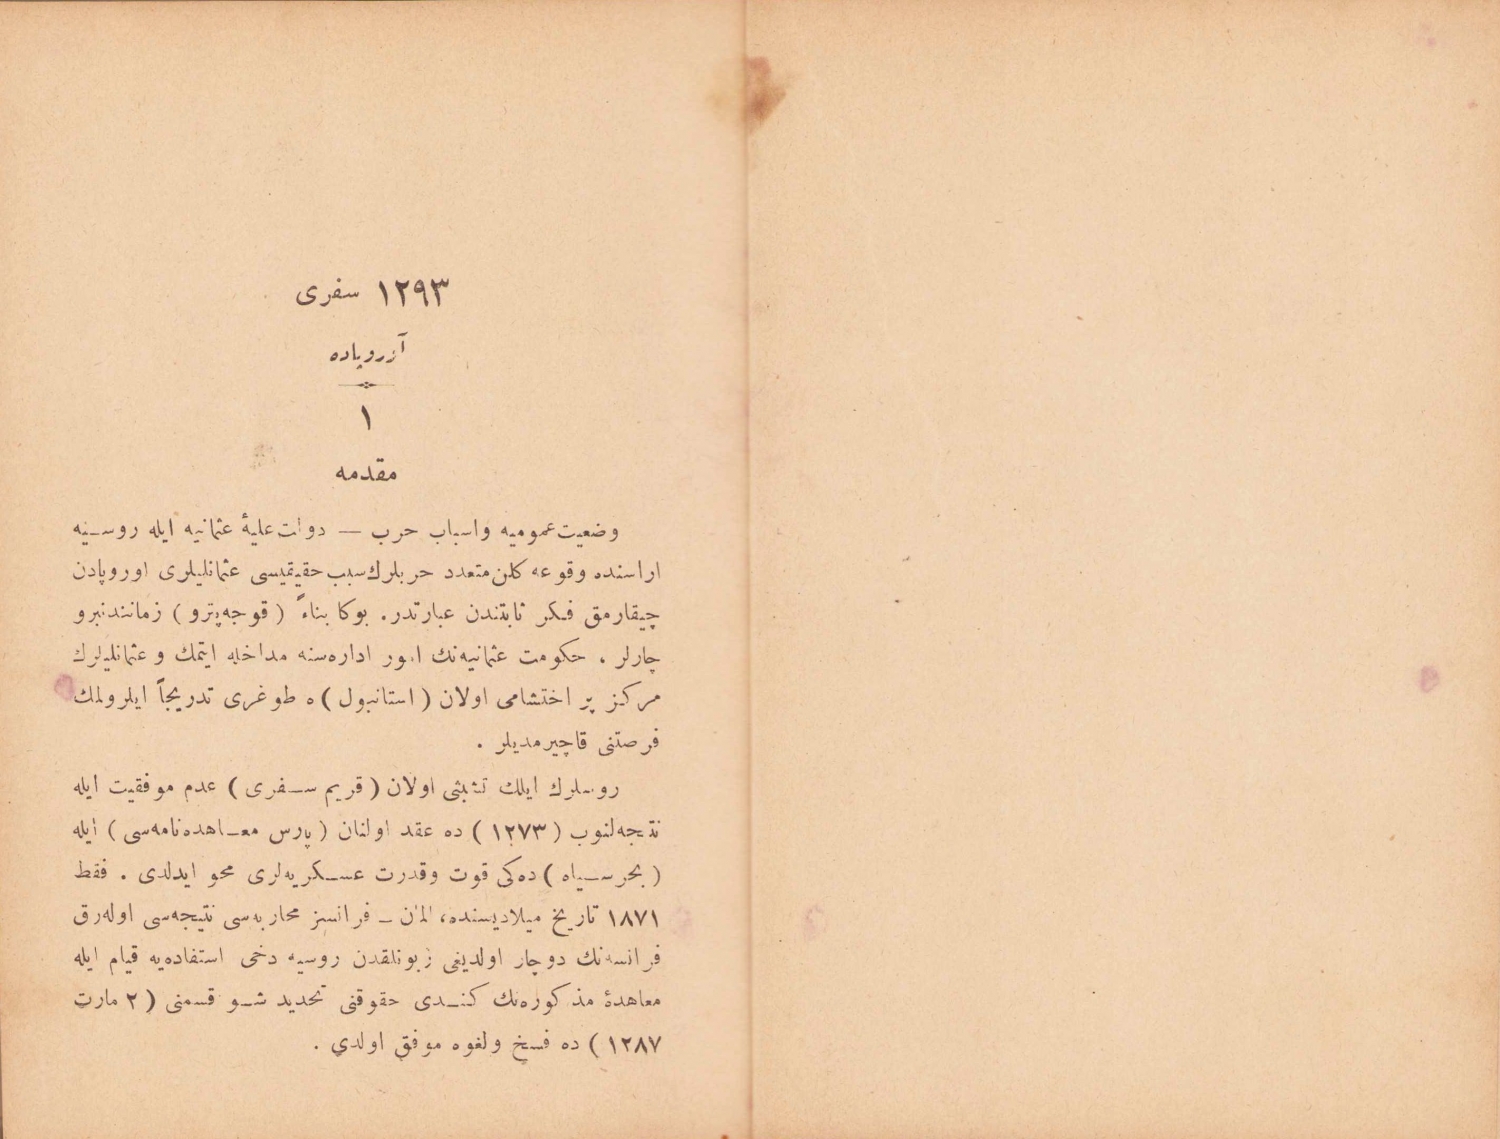 ١٢٩٣ سفرى
آزروپاده
١
مقدمه
وضعیت عمومیه واسباب حرب — دولت علیهٔ عثمانیه ایله روسـیه
اراسنده وقوعه کلن متعدد حربلرك سبب حقیقیسی عثمانلیلری اوروپادن
چیقارمق فکر ثابتندن عبارتدر. بوکا بناءً (قوجه پترو) زمانندنبرو
چارلر ، حکومت عثمانیه‌نك امور اداره‌سنه مداخله ایتمك و عثمانلیلرك
مرکز پر احتشامی اولان (استانبول)ه طوغری تدریجاً ایلرولمك
فرصتنی قاچیرمدیلر .
روسلرك ایلك تشبثی اولان (قریم سـفری) عدم موفقیت ایله
نتیجه‌لنوب (١٢٧٣) ده عقد اولنان (پارس معـاهده‌نامه‌سی) ایله
(بحر سـیاه)ده‌کی قوت وقدرت عسـکریه‌لری محو ایدلدی . فقط
١٨٧١ تاریخ میلادیسنده، المان ـ فرانسز محاربه‌سی نتیجه‌سی اوله‌رق
فرانسه‌نك دوچار اولدیغی زبونلقدن روسیه دخی استفاده‌یه قیام ایله
معاهدهٔ مذکوره‌نك کنـدی حقوقنی تحدید شـو قسمنی (٢ مارت
١٢٨٧) ده فسخ ولغوه موفق اولدی .